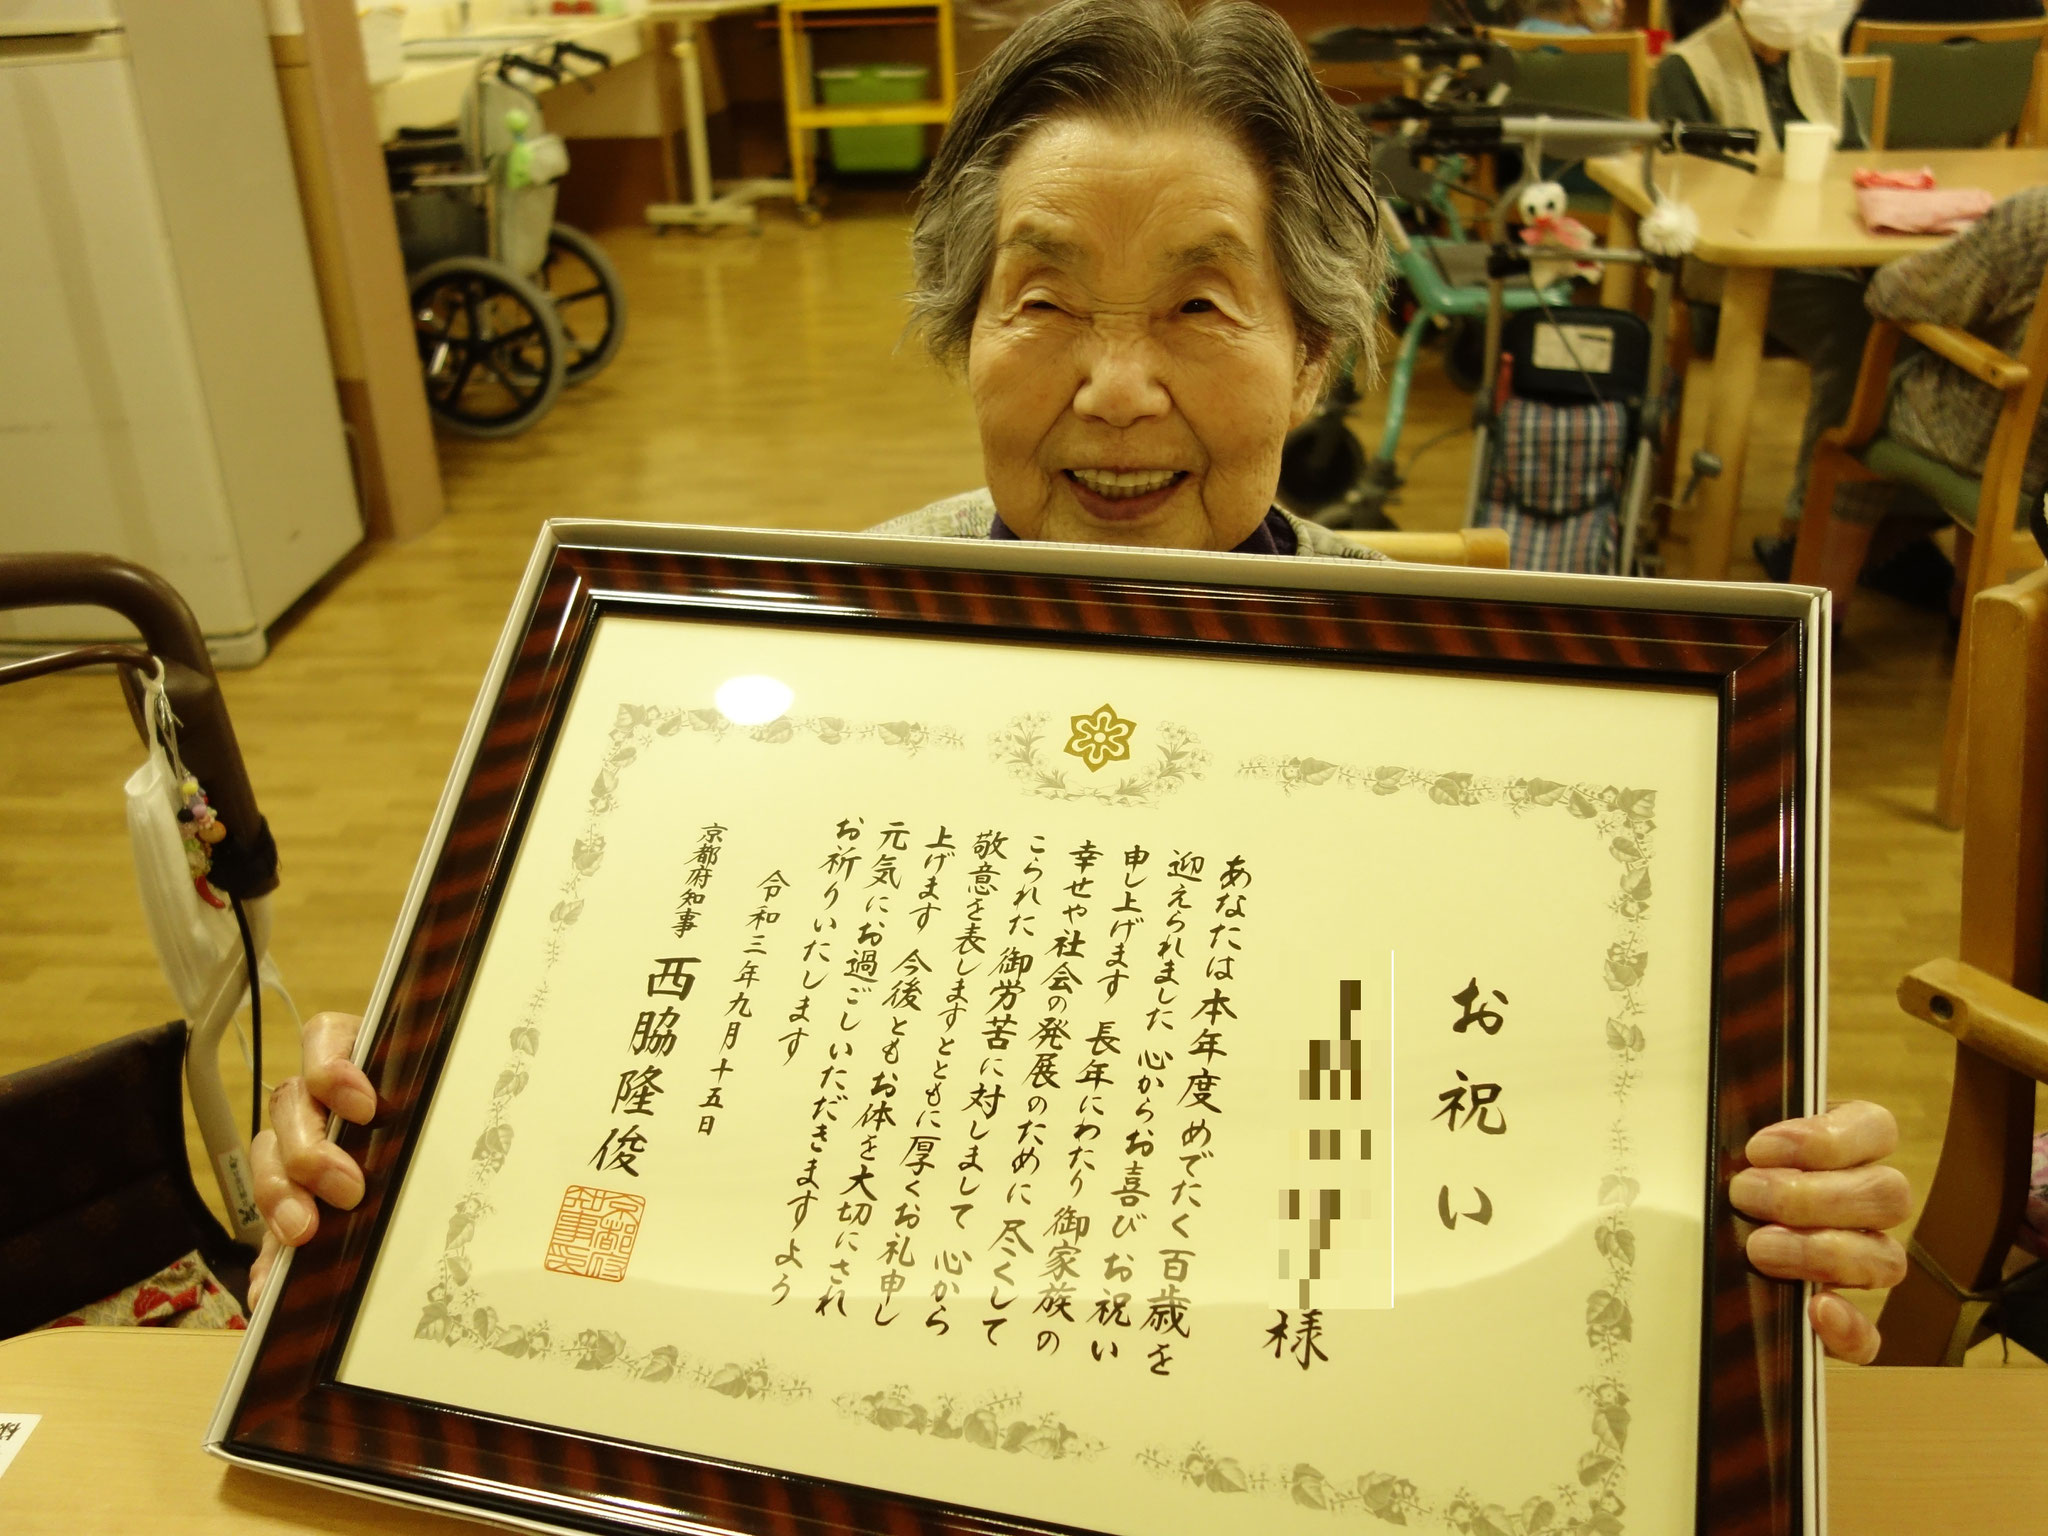 お祝い
様
あなたは本年度めでたく百歳を
迎えられました 心からお喜び お祝い
申し上げます 長年にわたり 御家族の
幸せや社会の発展のために 尽くして
こられた 御労苦に対しまして 心から
敬意を表しますとともに 厚くお礼申し
上げます 今後ともお体を大切にされ
元気にお過ごしいただきますよう
お祈りいたします
令和三年九月十五日
京都府知事 西脇隆俊
京都府
知事印
様